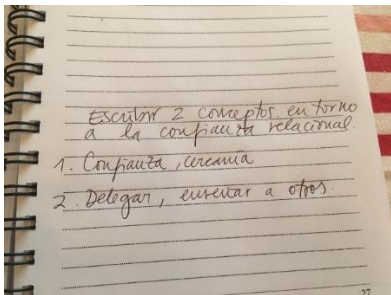 Escribir 2 conceptos en torno
a la confianza relacional.
1. Confianza, cercanía
2. Delegar, enseñar a otros.
27